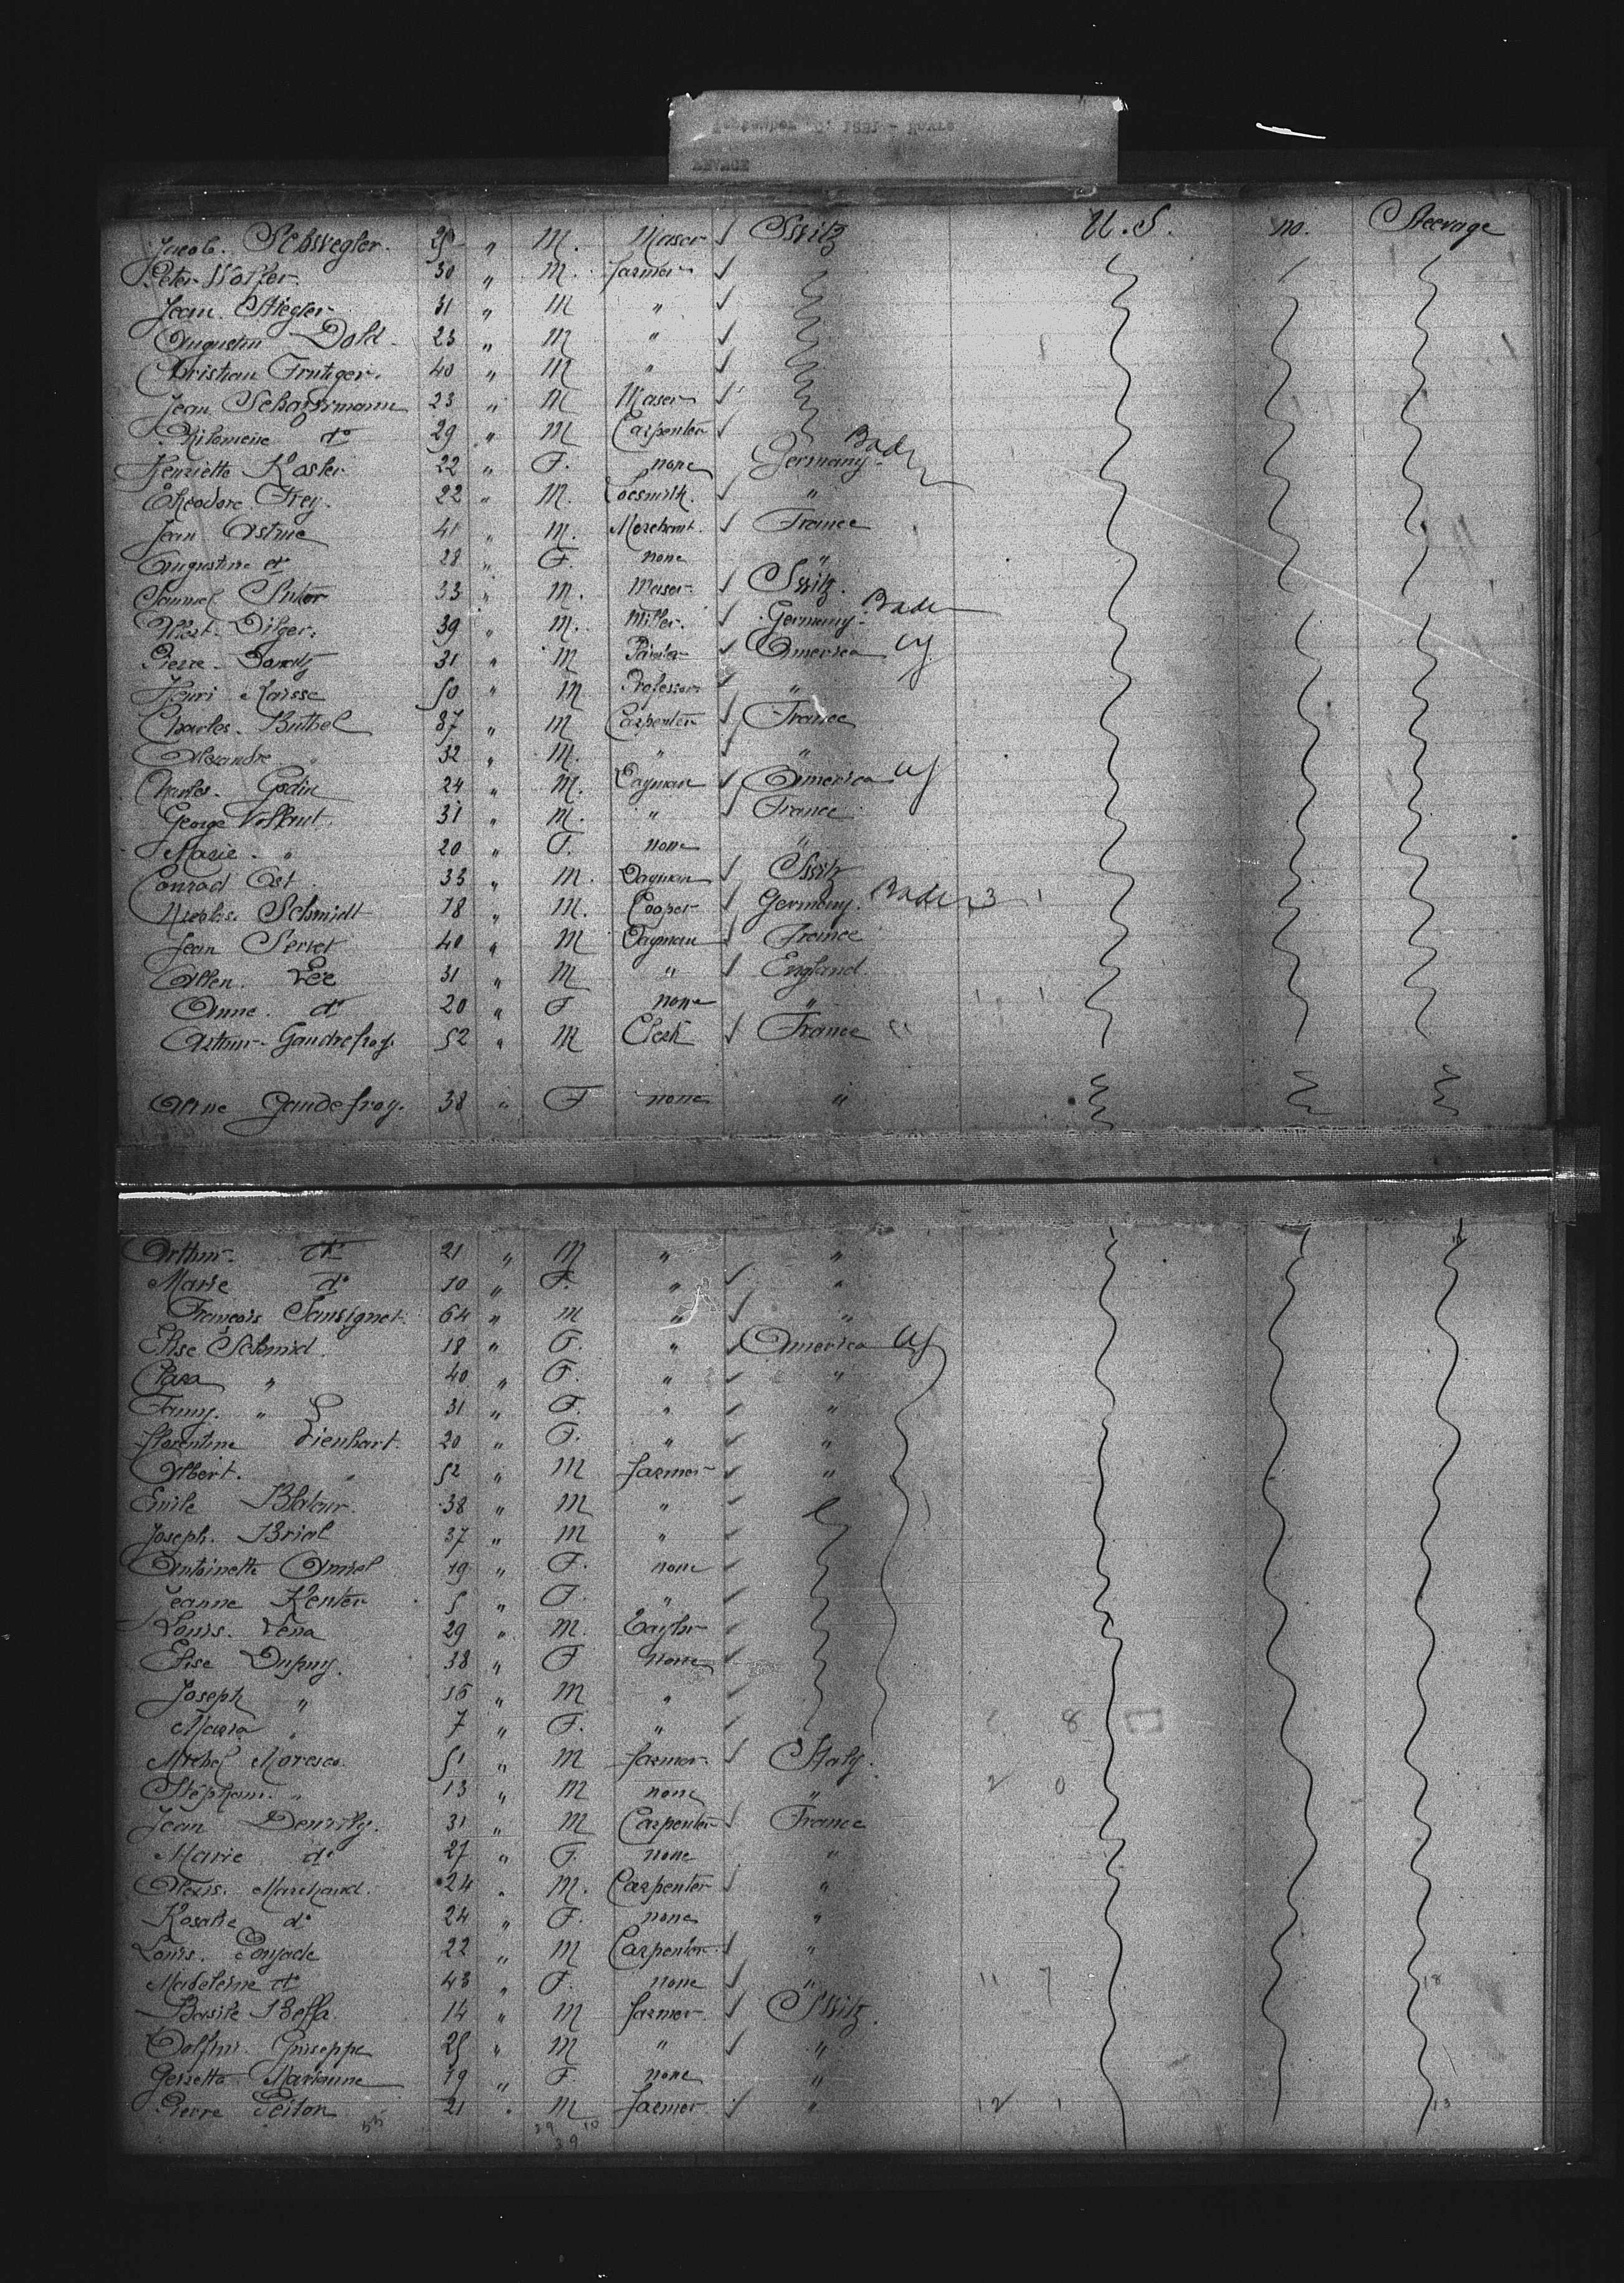 Jacob. Schwegler. 25 " M. Maser √ Switz U. S. no. Steerage
Peter Wolfer 30 " M. farmer √
Jean. Stiegler 31 " M " √
Augustin Dold 23 " M " √
Christian Frutiger. 40 " M " √
Jean Scharrmann 23 " M Maser √
Philomene do 29 " M Carpenter √
Henriette Koster 22 " F. none Germany. Bade
Theodore Frey. 22 " M. Locsmith. √ "
Jean Astrue 41 " M. Merchant. √ France
Augustine do 28 " F. none "
Samuel Suter 33 " M. Maser √ Switz.
Albert. Dilger. 39 " M. Miller. √ Germany. Bade
Pierre 31 " M √ America
Henri 50 " M Professor √ "
Charles. Buthel 37 " M Carpenter √ France
Alexandre " 32 " M. " √ "
Charles. Godin 24 " M. Dayman √ America
George Volkaut. 31 " M. " √ France
Marie. " 20 " F. none "
Conrad Ost. 33 " M. Dayman √ Switz
Nicolas. Schmidt 18 " M. Cooper √ Germany. Bade 3 1
Jean Perret 40 " M Dayman √ France
Allen. Lee 31 " M " √ England.
Anne. do 20 " F none "
Arthur. Gaudrefroy. 52 " M Clerk √ France
Aline Gaudefroy. 38 " F none "
Arthur do 21 " M " "
Marie do 10 " F. " √ "
François Sansignet 64 " M " √ "
Elise Schmid. 18 " F. " √ America
Clara " 40 " F. " √ "
Fanny. " 31 " F. " √ "
Florentine Lienhart. 20 " F. " √ "
Albert. " 52 " M farmer √ "
Emile 38 " M " √
Joseph. Brial 37 " M " √
Antoinette Amiel 19 " F. none √
Jeanne Kenter 5 " F. " √
Louis. Lena 29 " M. Taylor √
Elise Dupuy. 38 " F none √
Joseph " 16 " M " √
Maria " 7 " F. " √ 8
Michel Moresco. 51 " M farmer √ Italy.
Stephan. " 13 " M none " 2 0
Jean 31 " M Carpenter √ France
Marie do 27 " F. none "
Alexis. Marchand. 24 " M. Carpenter √ "
Rosalie do 24 " F. none "
Louis. Poujade 22 " M Carpenter √ "
Madeleine do 43 " F. none √ " 11 7 18
Basile Beffa. 14 " M farmer √ Switz.
Dolfini. Giuseppe 25 " M " √ "
Marianne 19 " F. none "
Pierre Peiton 21 " M farmer √ " 12 1 13
53 29 10
39